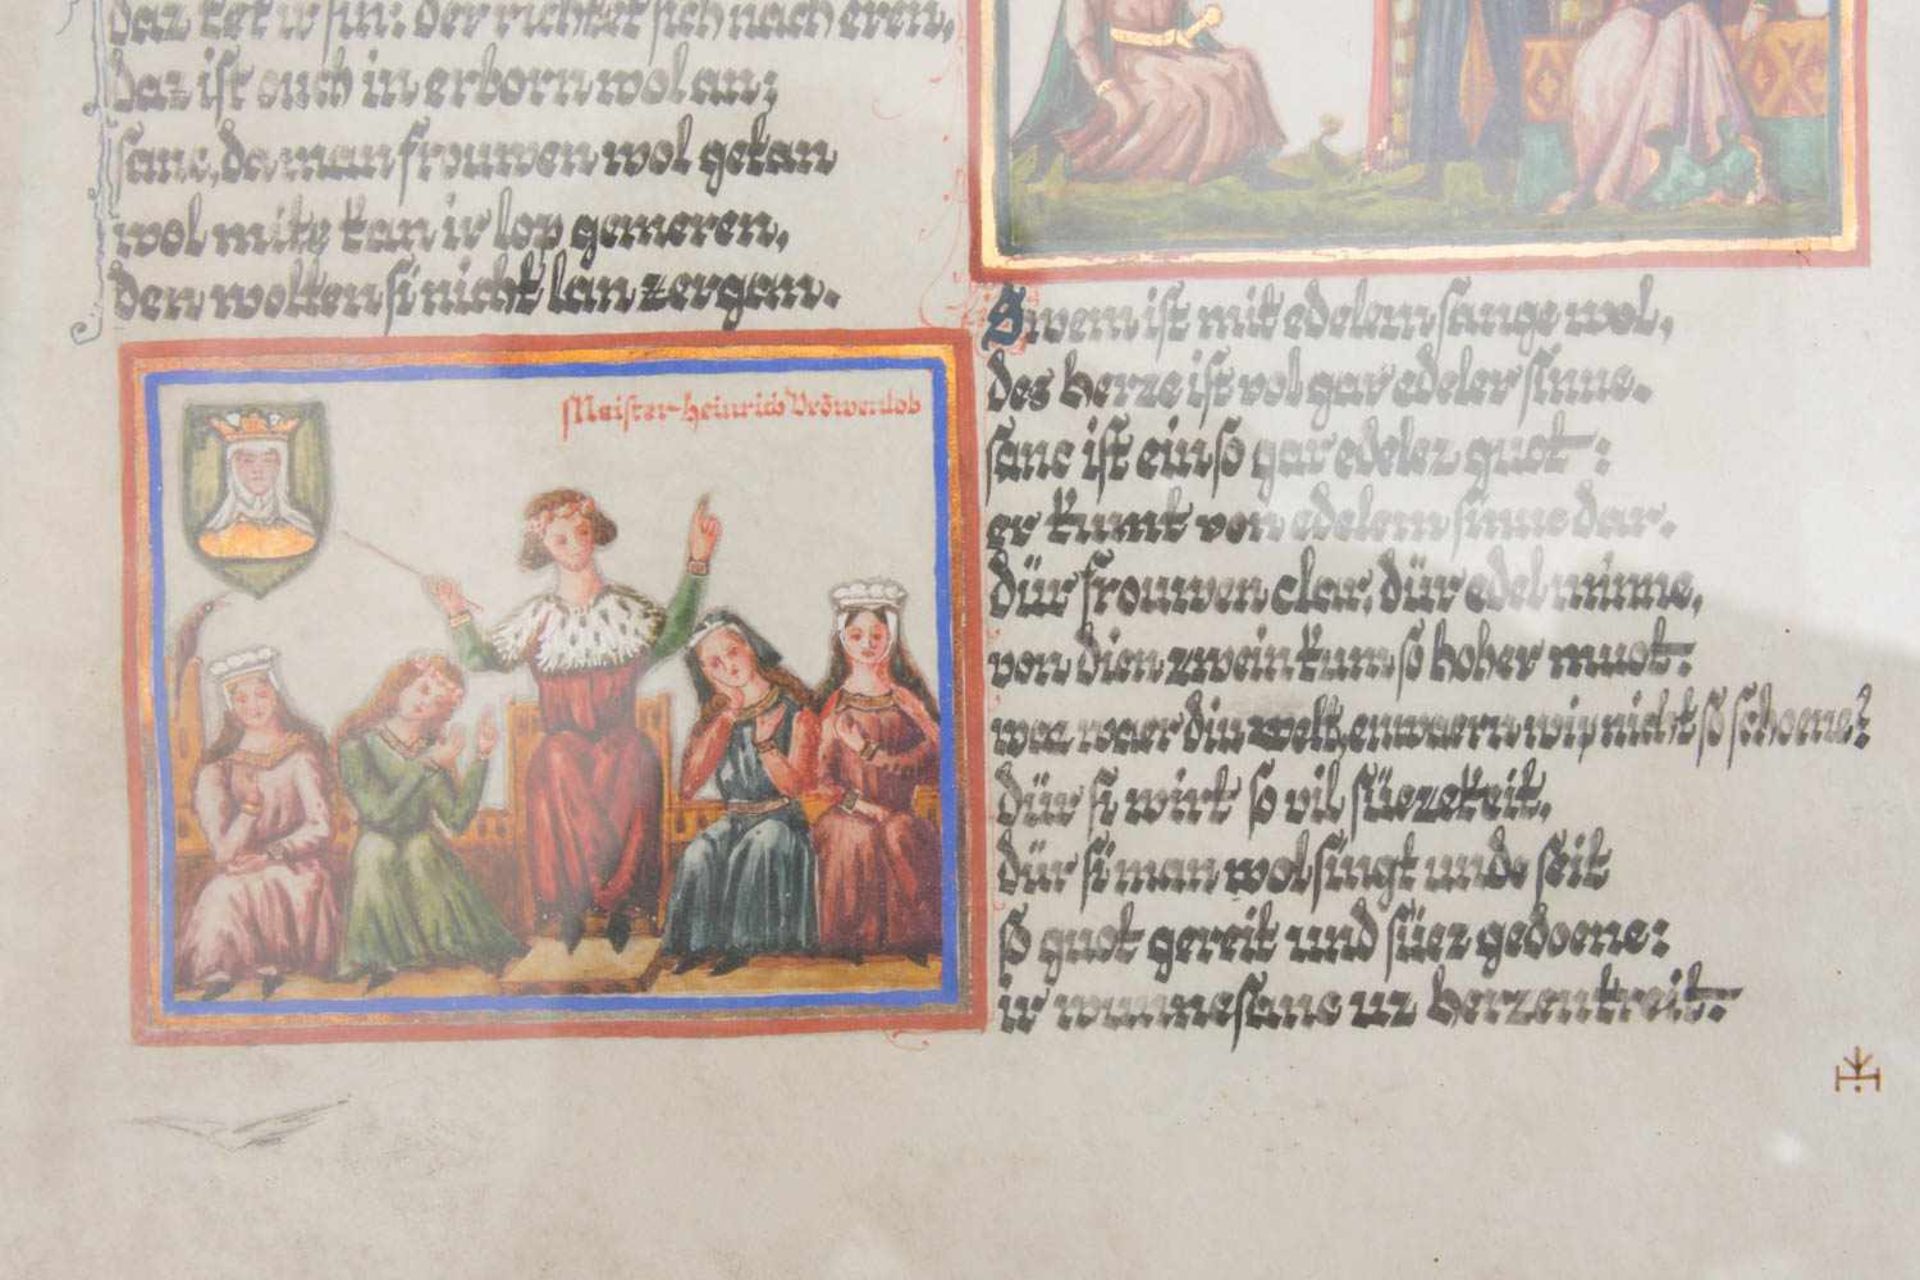 daz tet ir sin: der richtet sich nach eren,
daz ist ouch in erborn wol an;
sanc, da man frouwen wol getan
wol mite kan ir lop gemeren,
den wolten si nicht lan zergan.
Meister Heinrich Vrŏwenlob
Swem ist mit edelem sange wol,
des herze ist vol gar edeler sinne.
sanc ist ein so gar edelez guot:
er kumt von edelem sinne dar.
dür frouwen clar, dür edel minne,
von dien zwein kum so hoher muot:
waz waer diu welt, enwaern wip nicht so schoene?
dür si wirt so vil süezekeit,
dür si man wol singt unde seit
so guot gereit und süez gedoene:
ir wunne sanc uz herzen treit.